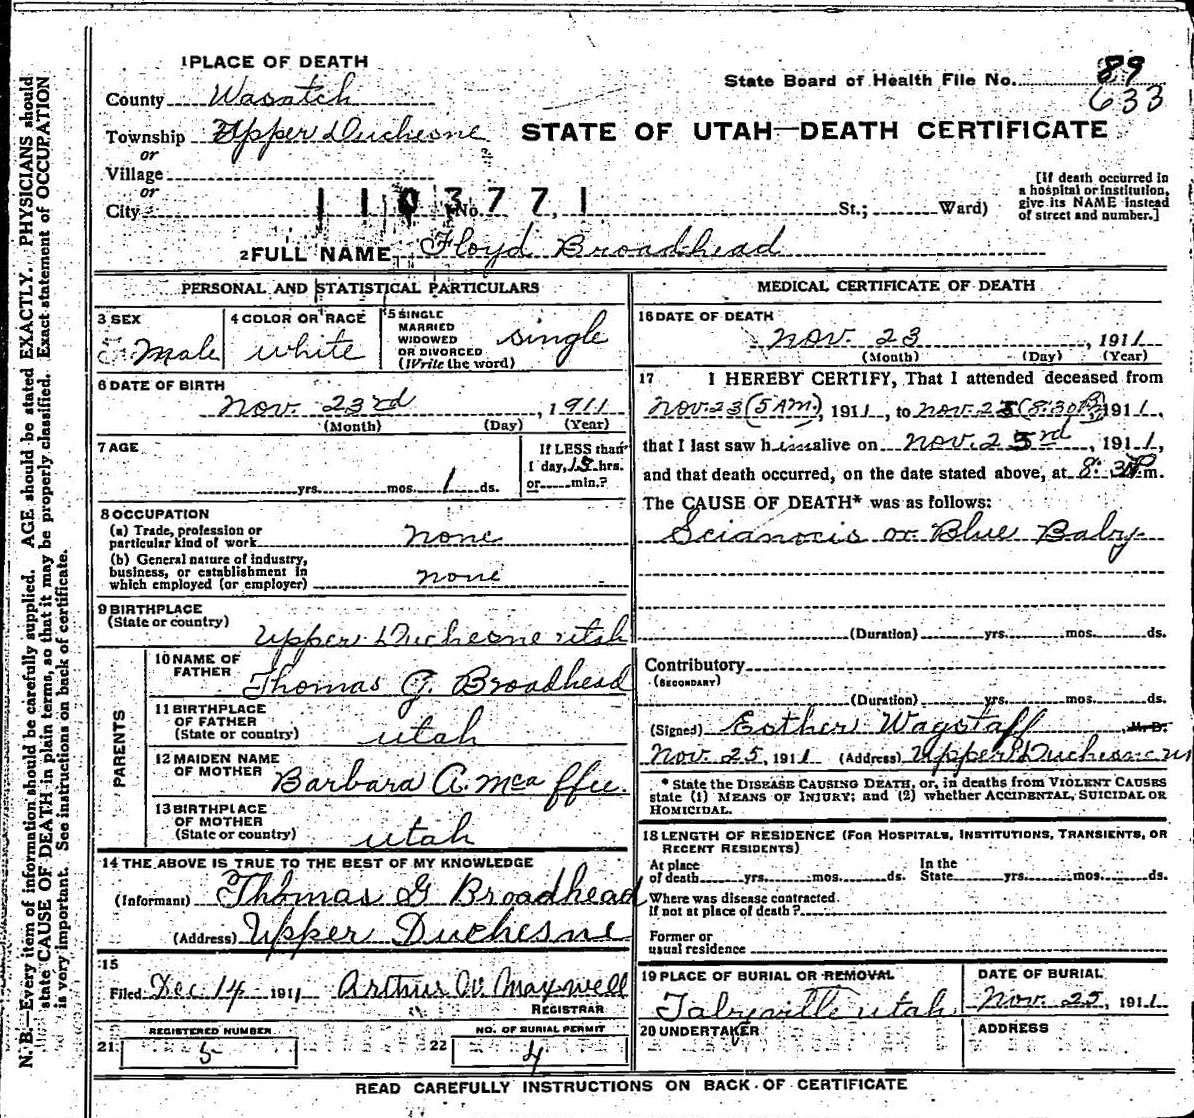 1 PLACE OF DEATH
State Board of Health File No. 89
633
County Wasatch
Township Upper Duchesne
STATE OF UTAH—DEATH CERTIFICATE
or
Village
or
City 1103771 No. St.; Ward)
[If death occurred in
a hospital or institution,
give its NAME instead
of street and number.]
2 FULL NAME Floyd Broadhead
PERSONAL AND STATISTICAL PARTICULARS
3 SEX
Male
4 COLOR OR RACE
white
5 SINGLE
MARRIED
WIDOWED
OR DIVORCED
(Write the word)
single
6 DATE OF BIRTH
Nov. 23rd, 1911
(Month) (Day) (Year)
7 AGE
yrs. mos. 1 ds.
If LESS than
1 day, 15 hrs.
or min.?
8 OCCUPATION
(a) Trade, profession or
particular kind of work none
(b) General nature of industry,
business, or establishment in
which employed (or employer) none
9 BIRTHPLACE
(State or country)
Upper Duchesne Utah
PARENTS
10 NAME OF
FATHER
Thomas G. Broadhead
11 BIRTHPLACE
OF FATHER
(State or country) Utah
12 MAIDEN NAME
OF MOTHER
Barbara A. Mcaffee.
13 BIRTHPLACE
OF MOTHER
(State or country) Utah
14 THE ABOVE IS TRUE TO THE BEST OF MY KNOWLEDGE
(Informant) Thomas G Broadhead
(Address) Upper Duchesne
15
Filed Dec. 14 1911 Arthur W. Maxwell
REGISTRAR
REGISTERED NUMBER
21 5
NO. OF BURIAL PERMIT
22 4
MEDICAL CERTIFICATE OF DEATH
16 DATE OF DEATH
Nov. 23, 1911
(Month) (Day) (Year)
17 I HEREBY CERTIFY, That I attended deceased from
Nov. 23 (5 A.M.), 1911, to Nov. 23 (8:30 P), 1911,
that I last saw him alive on Nov. 23rd, 1911,
and that death occurred, on the date stated above, at 8:30 P m.
The CAUSE OF DEATH* was as follows:
Scianocis or Blue Baby.
(Duration) yrs. mos. ds.
Contributory
(SECONDARY)
(Duration) yrs. mos. ds.
(Signed) Esther Wagstaff M. D.
Nov. 25, 1911 (Address) Upper Duchesne
* State the DISEASE CAUSING DEATH, or, in deaths from VIOLENT CAUSES
state (1) MEANS OF INJURY; and (2) whether ACCIDENTAL, SUICIDAL OR
HOMICIDAL.
18 LENGTH OF RESIDENCE (FOR HOSPITALS, INSTITUTIONS, TRANSIENTS, OR
RECENT RESIDENTS)
At place
of death yrs. mos. ds.
In the
State yrs. mos. ds.
Where was disease contracted
If not at place of death?
Former or
usual residence
19 PLACE OF BURIAL OR REMOVAL
Tabyville Utah
DATE OF BURIAL
Nov. 25, 1911
20 UNDERTAKER
ADDRESS
READ CAREFULLY INSTRUCTIONS ON BACK OF CERTIFICATE
N. B.—Every item of information should be carefully supplied. AGE should be stated EXACTLY. PHYSICIANS should
state CAUSE OF DEATH in plain terms, so that it may be properly classified. Exact statement of OCCUPATION
is very important. See instructions on back of certificate.